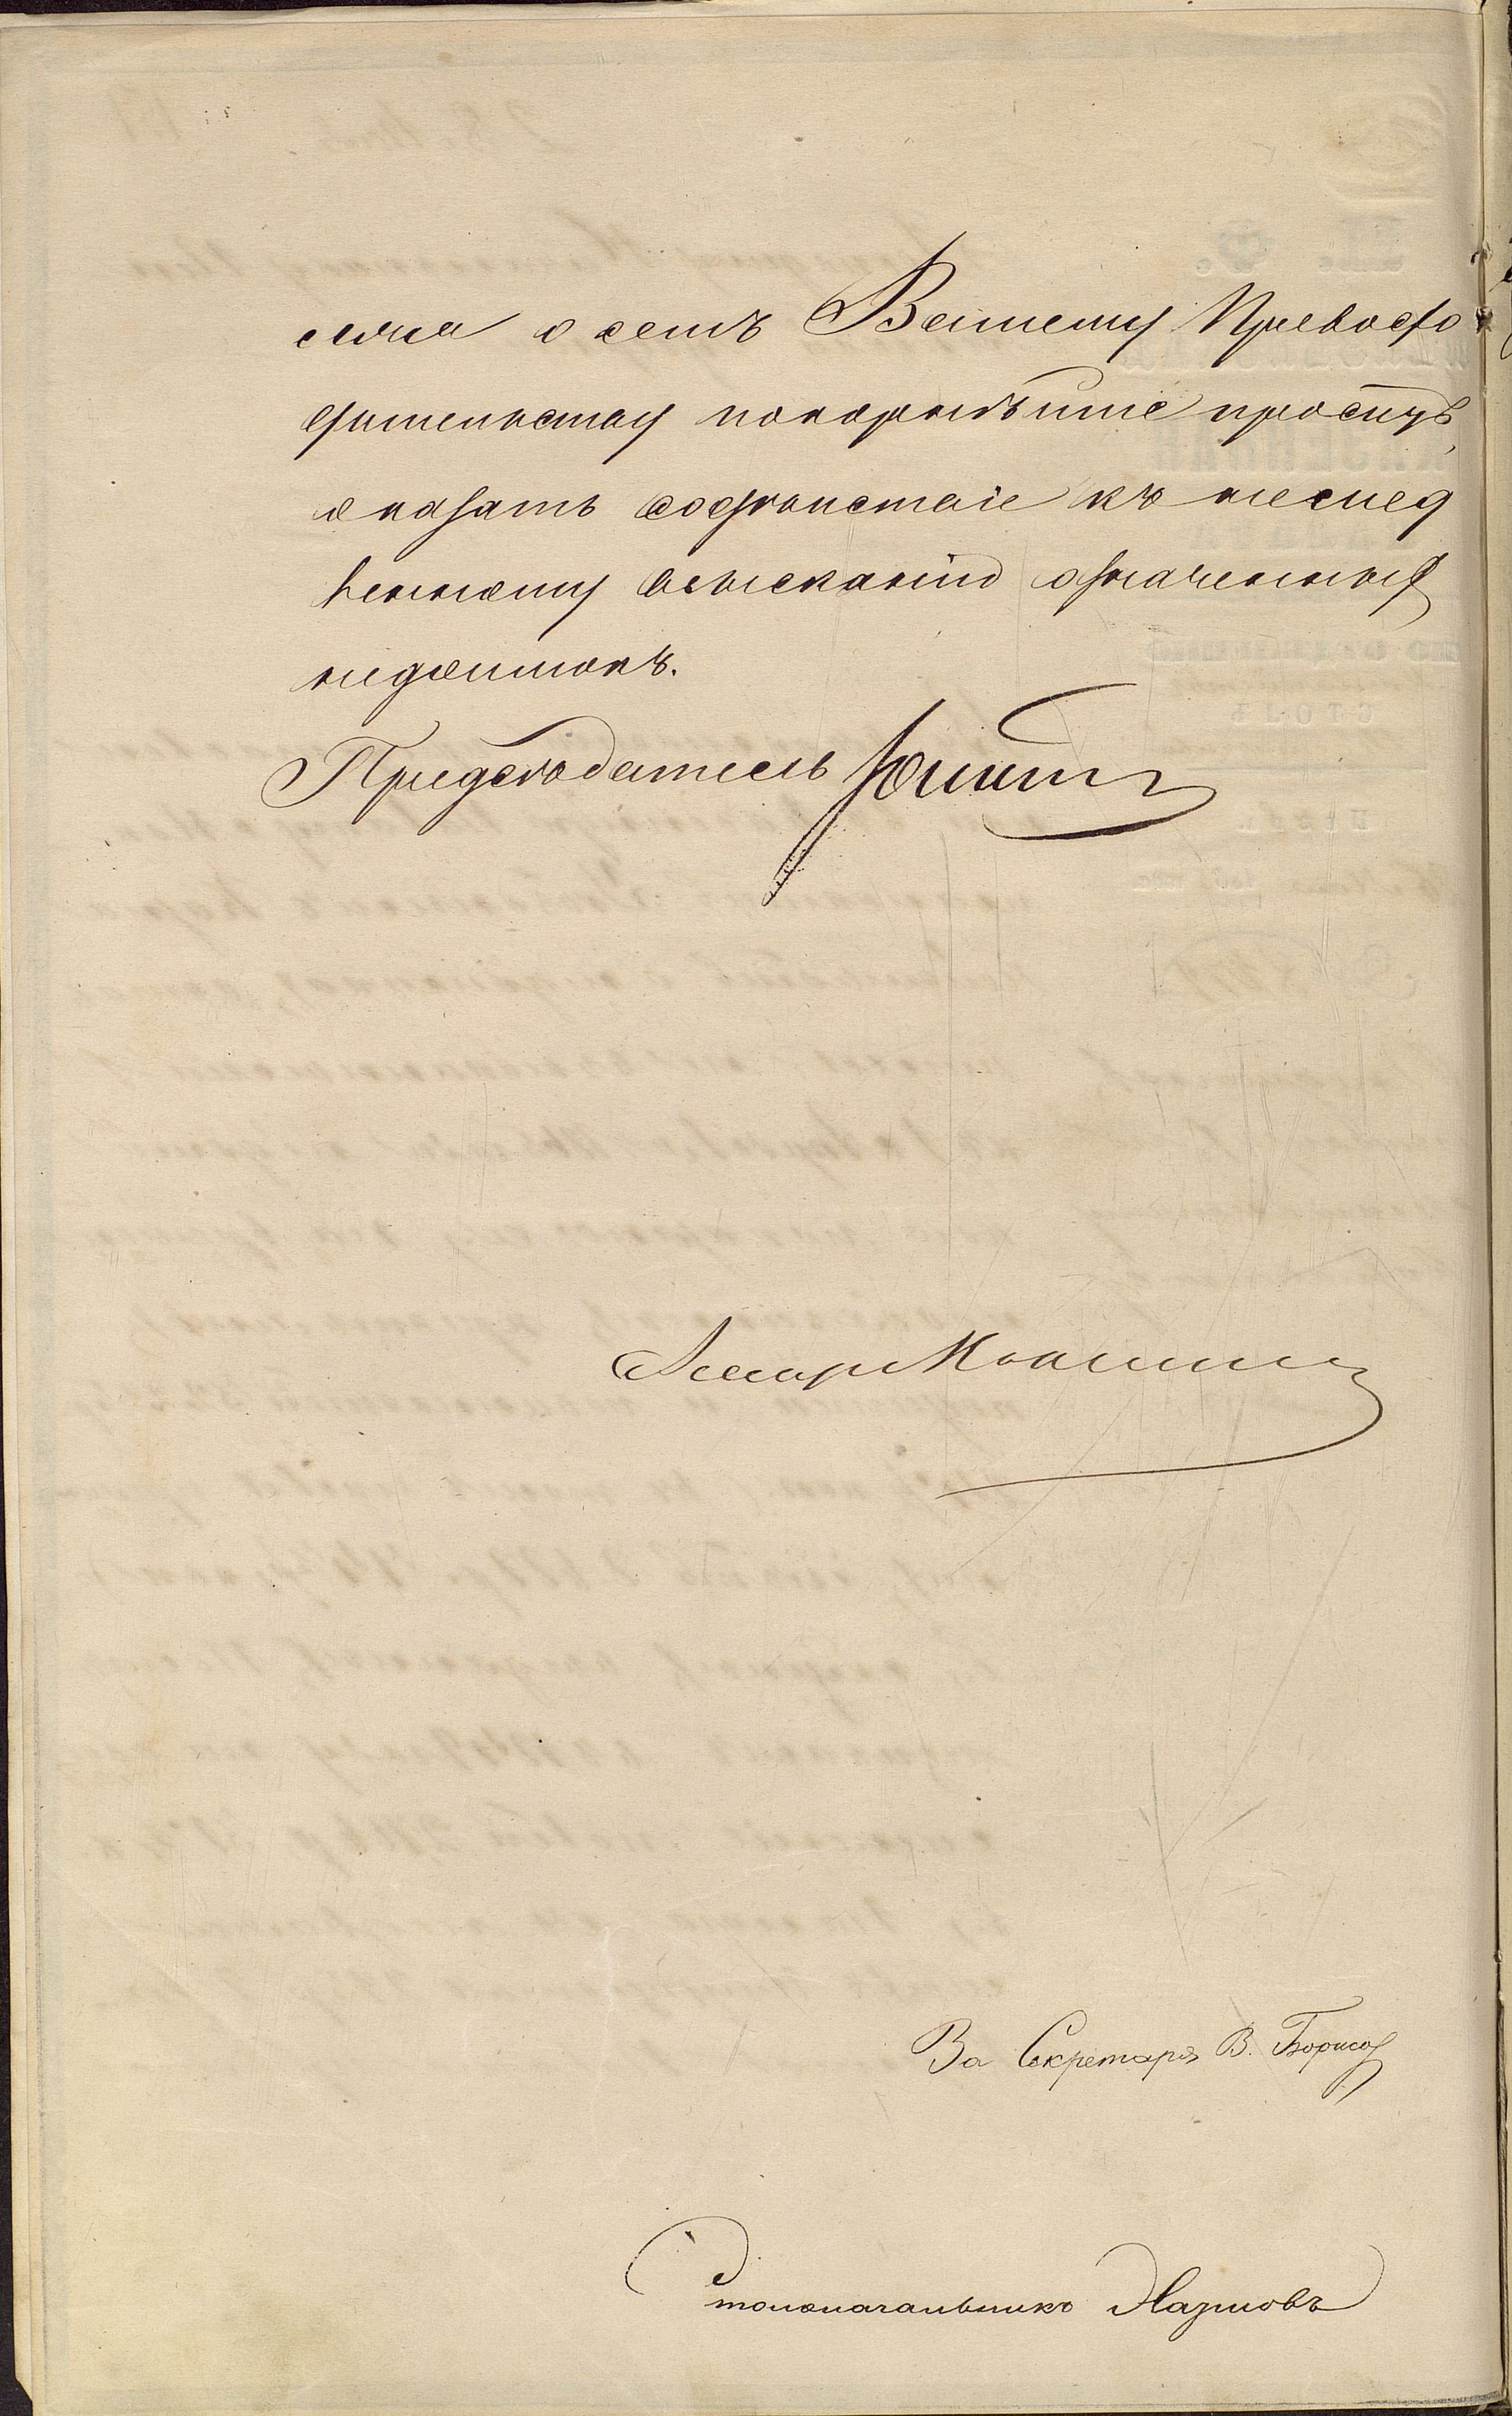 о семъ Вашему Превосхо
дительству покорнѣйше проситъ
оказать содѣйствіе къ немед
ленному взысканію означенныхъ
недоимокъ.
Предсѣдатель
За Секретаря В. Борисов
Столоначальникъ Назимовъ